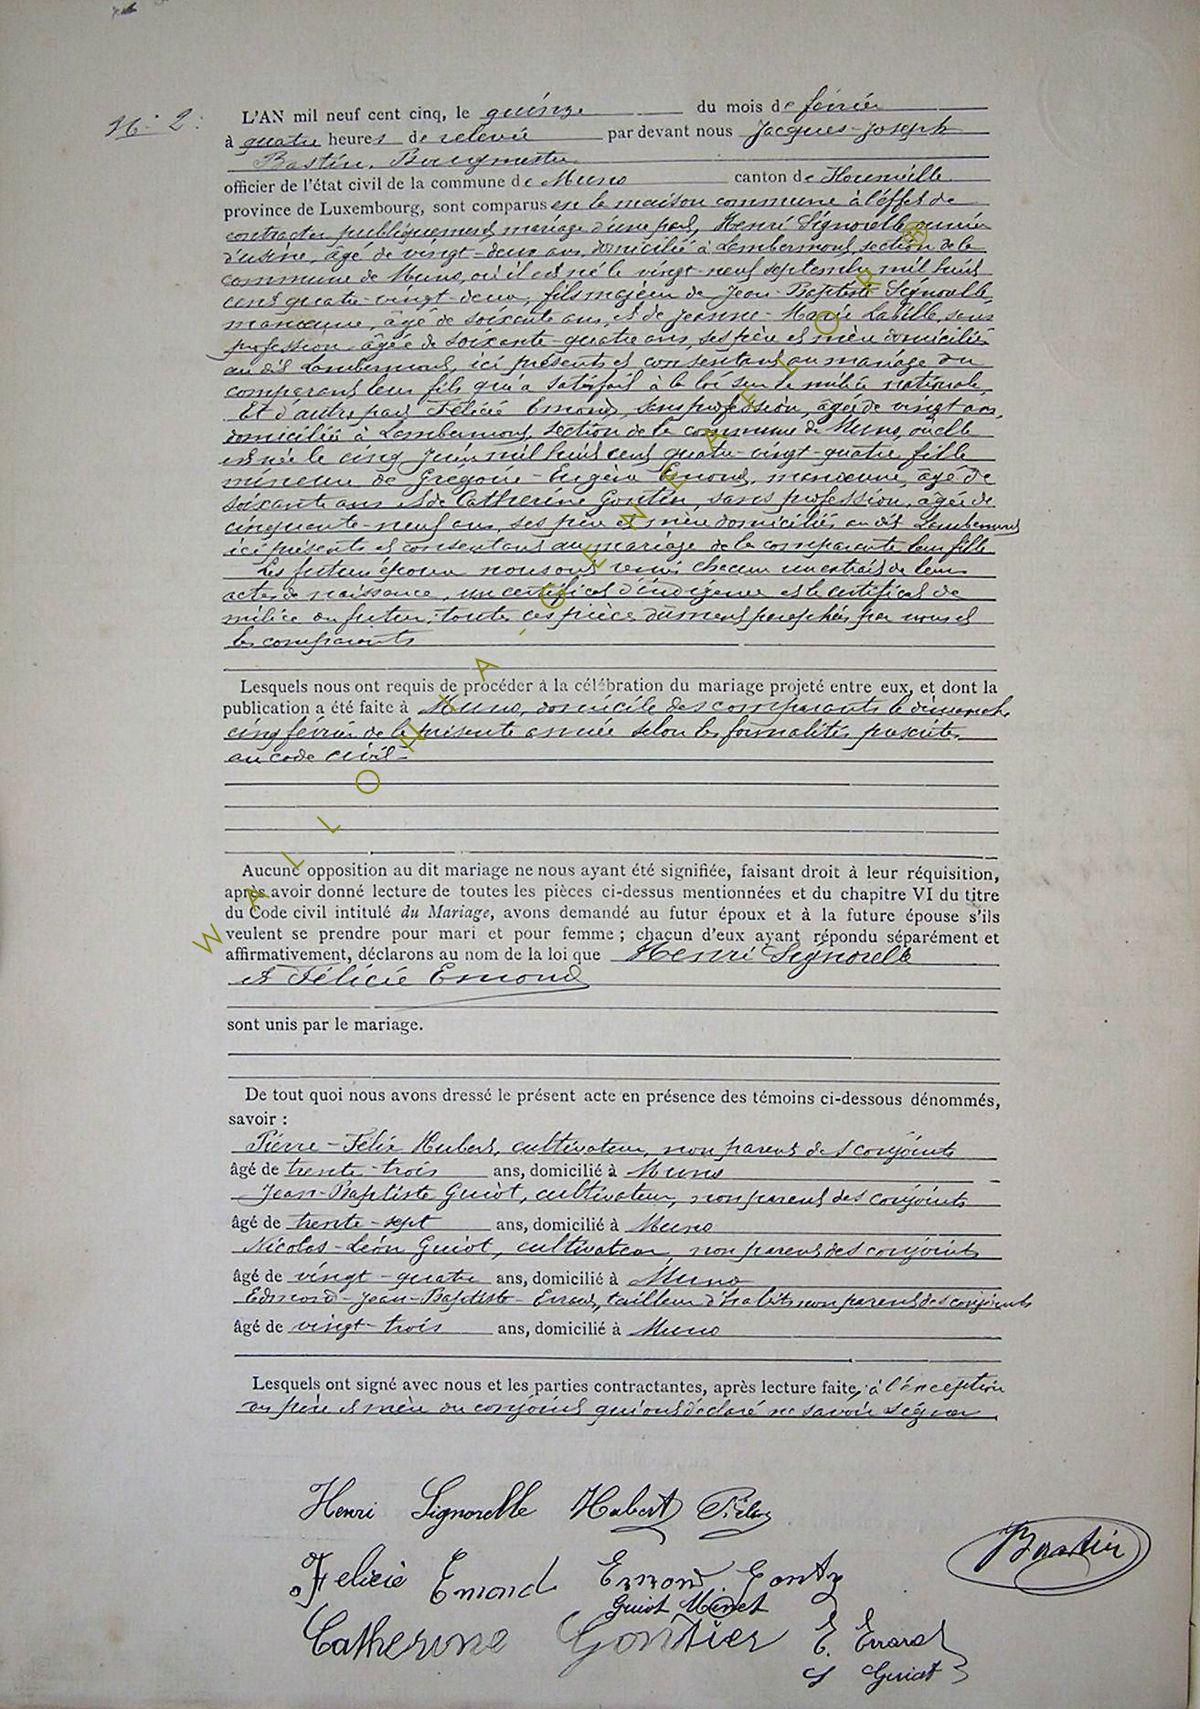 N° 2:
L'AN mil neuf cent cinq, le quinze du mois de février
à quatre heures de relevée par devant nous Jacques-Joseph
Bastin, Bourgmestre
officier de l'état civil de la commune de Muno canton de Florenville
province de Luxembourg, sont comparus en la maison commune à l'effet de
contracter publiquement mariage d'une part, Henri Signorelle, ouvrier
d'usine, âgé de vingt-deux ans, domicilié à Lambermont, section de la
commune de Muno, où il est né le vingt-neuf septembre mil huit
cent quatre-vingt-deux, fils majeur de Jean-Baptiste Signorelle,
manœuvre, âgé de soixante ans, et de Jeanne-Marie Labille, sans
profession, âgée de soixante-quatre ans, ses père et mère domiciliés
au dit Lambermont, ici présents et consentant au mariage du
comparant leur fils qui a satisfait à la loi sur la milice nationale.
Et d'autre part Félicie Emond, sans profession, âgée de vingt ans,
domiciliée à Lambermont, section de la commune de Muno, où elle
est née le cinq juin mil huit cent quatre-vingt-quatre fille
mineure de Grégoire-Eugène Emond, manœuvre, âgé de
soixante ans et de Catherine Gontier, sans profession, âgée de
cinquante-neuf ans, ses père et mère domiciliés au dit Lambermont
ici présents et consentant au mariage de la comparante leur fille
Les futurs époux nous ont remis chacun un extrait de leur
acte de naissance, un certificat d'indigence et le certificat de
milice du futur; toutes ces pièces dûment paraphées par nous et
les comparants
Lesquels nous ont requis de procéder à la célébration du mariage projeté entre eux, et dont la
publication a été faite à Muno, domicile des comparants le dimanche
cinq février de la présente année selon les formalités prescrites
au code civil
Aucune opposition au dit mariage ne nous ayant été signifiée, faisant droit à leur réquisition,
après avoir donné lecture de toutes les pièces ci-dessus mentionnées et du chapitre VI du titre
du Code civil intitulé du Mariage, avons demandé au futur époux et à la future épouse s'ils
veulent se prendre pour mari et pour femme ; chacun d'eux ayant répondu séparément et
affirmativement, déclarons au nom de la loi que Henri Signorelle
et Félicie Emond
sont unis par le mariage.
De tout quoi nous avons dressé le présent acte en présence des témoins ci-dessous dénommés,
savoir :
Pierre-Félix Hubert, cultivateur, non parent des conjoints
âgé de trente-trois ans, domicilié à Muno
Jean-Baptiste Guiot, cultivateur, non parent des conjoints
âgé de trente-sept ans, domicilié à Muno
Nicolas-Léon Guiot, cultivateur, non parent des conjoints
âgé de vingt-quatre ans, domicilié à Muno
Edmond-Jean-Baptiste-Errard, tailleur d'habits non parent des conjoints
âgé de vingt-trois ans, domicilié à Muno
Lesquels ont signé avec nous et les parties contractantes, après lecture faite, à l'exception
du père et mère du conjoint qui ont déclaré ne savoir signer.
Henri Signorelle Hubert
Félicie Emond Emond
Bastin
Guiot Minet
Catherine Gontier E. Errard
Guiot
WALLONIA-GENEALOR®